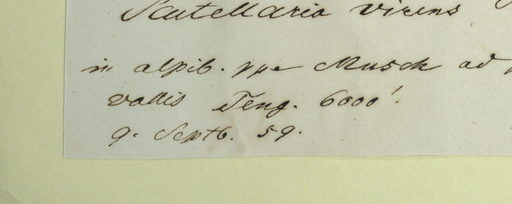 Scutellaria virens
in alpib. ppe Musch ad
vallis Teng. 6000'.
9. Septb. 59.